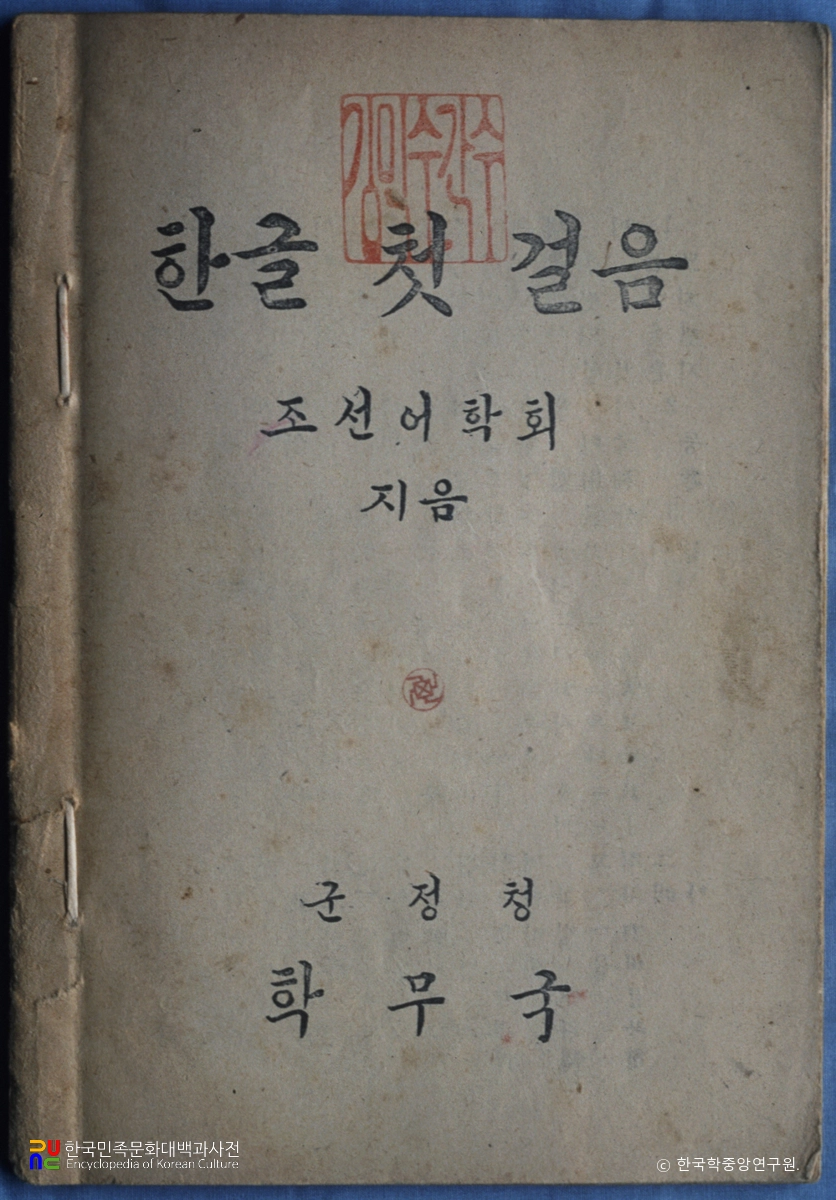 한글 첫 걸음
조선어학회
지음
군정청
학무국
한국민족문화대백과사전
Encyclopedia of Korean Culture
© 한국학중앙연구원.